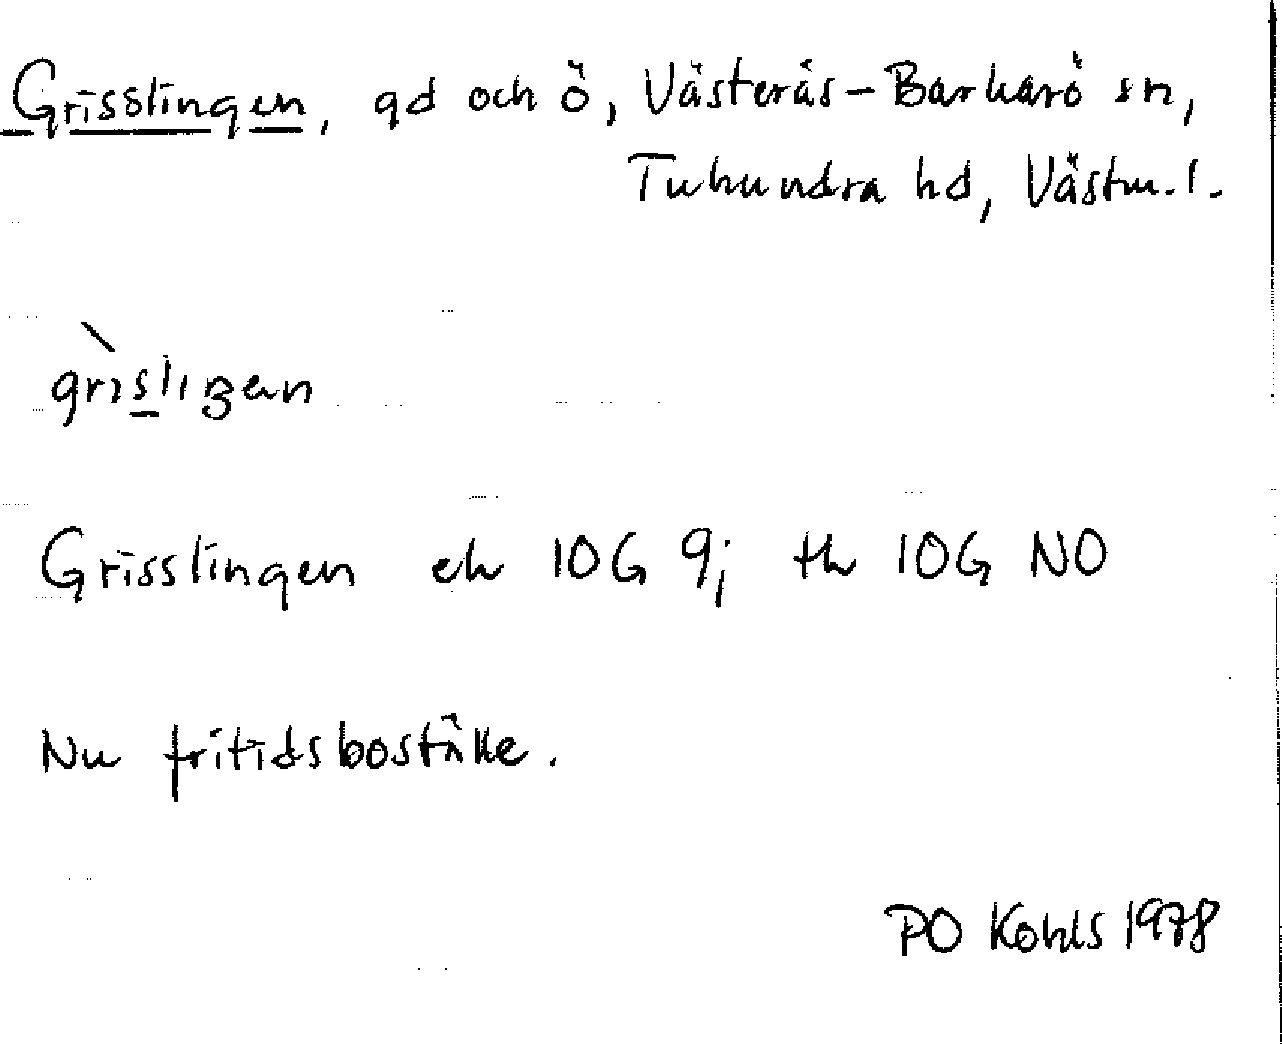 Grisslingen, gd och ö, Västerås-Barkarö sn,
Tuhundra hd, Västm. l.
grìslıŋen
Grisslingen ek 10G 9j tk 10G NO
Nu fritidsboställe.
PO Kohls 1978